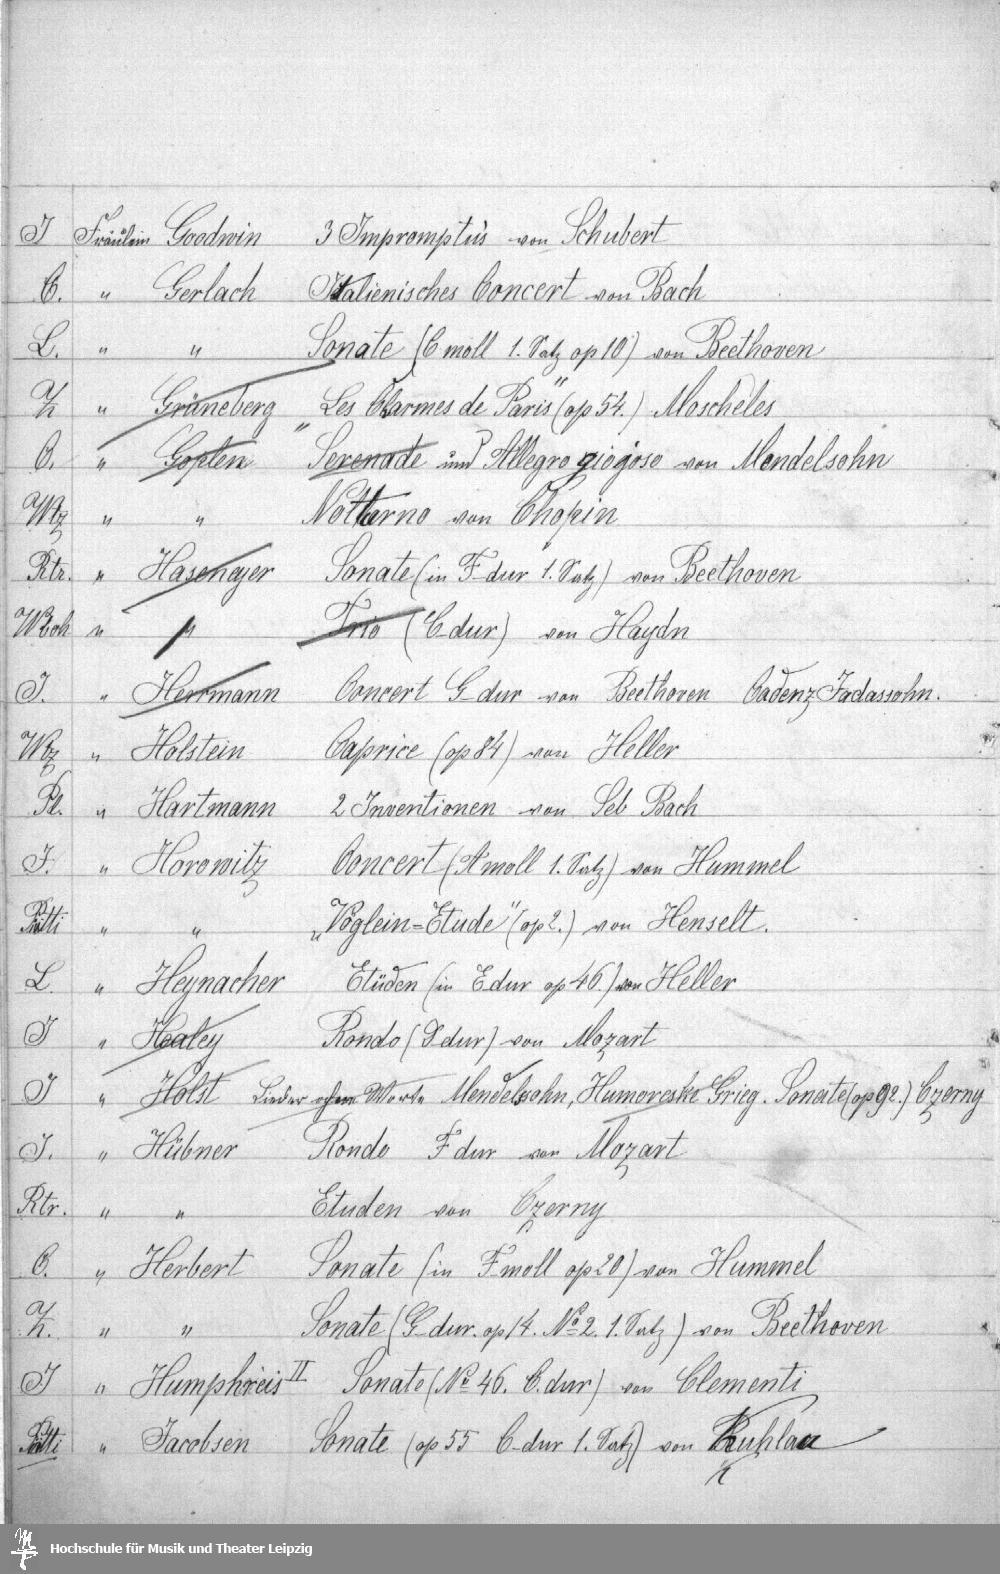 J Fräulein Goodwin 3 Impromptus von Schubert
C. " Gerlach Italienisches Concert von Bach
L. " " Sonate (C moll 1. Satz op 10) von Beethoven
Z " Grüneberg "Les Charmes de Paris" (op 54.) Moscheles
C. " Goplen Serenade und Allegro giogoso von Mendelsohn
Wtz " " Notturno von Chopin
Rtr. " Hasemeyer Sonate (in F dur 1. Satz) von Beethoven
" " Trio (C-dur) von Haydn
J. " Herrmann Concert G-dur von Beethoven Cadenz Jadassohn.
Wtz " Holstein Caprice (op 84) von Heller
Pl. " Hartmann 2 Inventionen von Seb Bach
J. " Horowitz Concert (A moll 1. Satz) von Hummel
" " „Vöglein=Etude" (op 2.) von Henselt.
L. " Heynacher Etüden (in E dur op 46.) von Heller
J " Healey Rondo (D dur) von Mozart
J " Holst Lieder ohne Worte Mendelsohn, Humoreske Grieg. Sonate (op 92.) Czerny
J. " Hübner Rondo F dur von Mozart
Rtr. " " Etuden von Czerny
C. " Herbert Sonate (in F moll op 20) von Hummel
Z. " " Sonate (G-dur. op 14. No 2. 1. Satz) von Beethoven
J " Humphreis II Sonate (No 46. C. dur) von Clementi
" Jacobsen Sonate (op 55 C-dur 1. Satz) von Kuhlau
Hochschule für Musik und Theater Leipzig